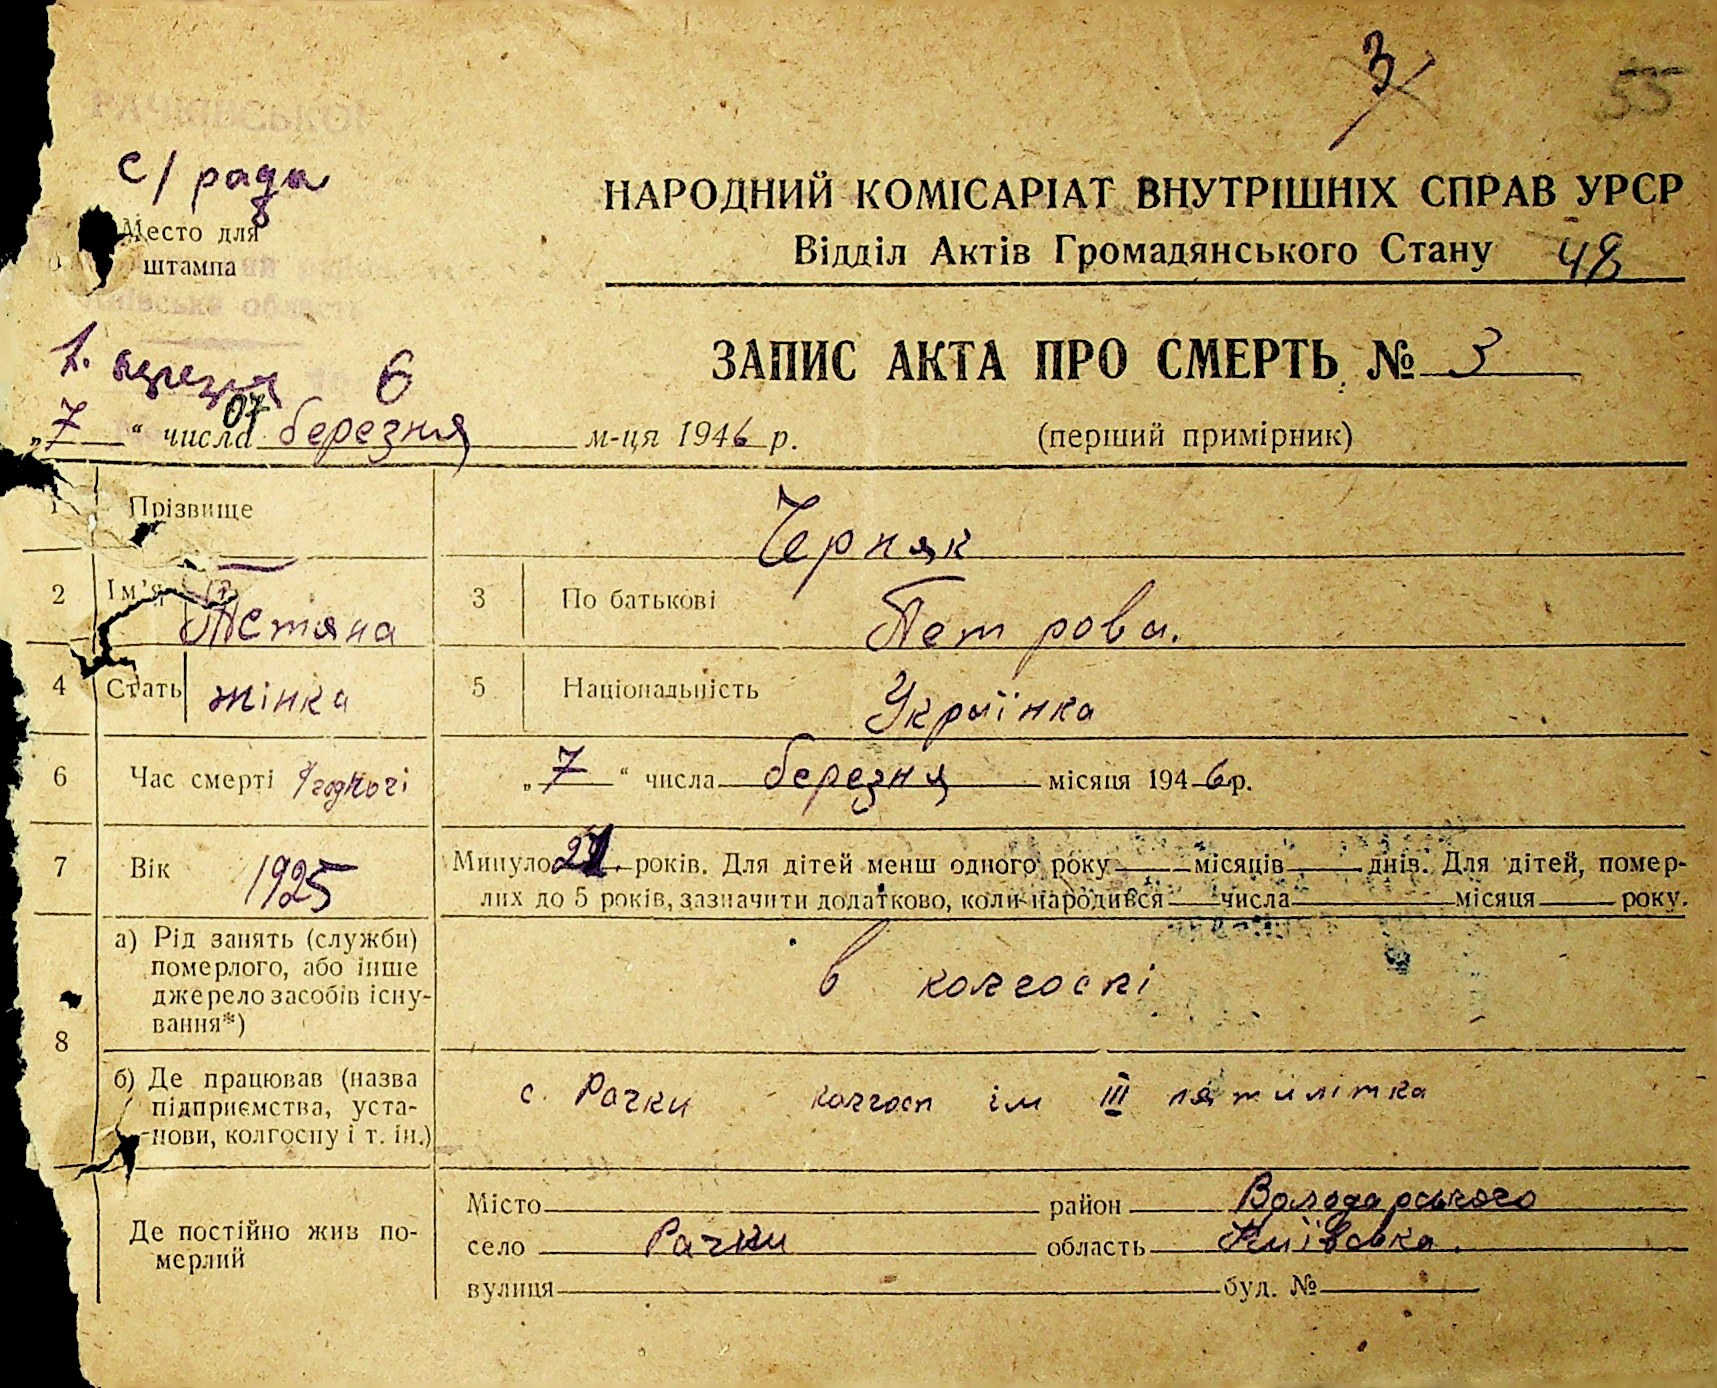 3
55
с/ рада
Место для
штампа
НАРОДНИЙ КОМІСАРІАТ ВНУТРІШНІХ СПРАВ УРСР
Відділ Актів Громадянського Стану 48
ЗАПИС АКТА ПРО СМЕРТЬ № 3
6
07
„7“ числа березня м-ця 1946 р. (перший примірник)
1 Прізвище Черняк
2 Ім'я Тетяна 3 По батькові Петрова.
4 Стать жінка 5 Національність Українка
6 Час смерті „7“ числа березня місяця 1946 р.
7 Вік 1925 Минуло 21 років. Для дітей менш одного року місяців днів. Для дітей, помер-
лих до 5 років, зазначити додатково, коли народився числа місяця року.
8 а) Рід занять (служби)
померлого, або інше
джерело засобів існу-
вання*)
в колгоспі
б) Де працював (назва
підприємства, уста-
нови, колгоспу і т. ін.)
с. Рачки колгосп ім III пятилітка
Де постійно жив по-
мерлий
Місто район Володарського
село Рачки область Київська.
вулиця буд. №